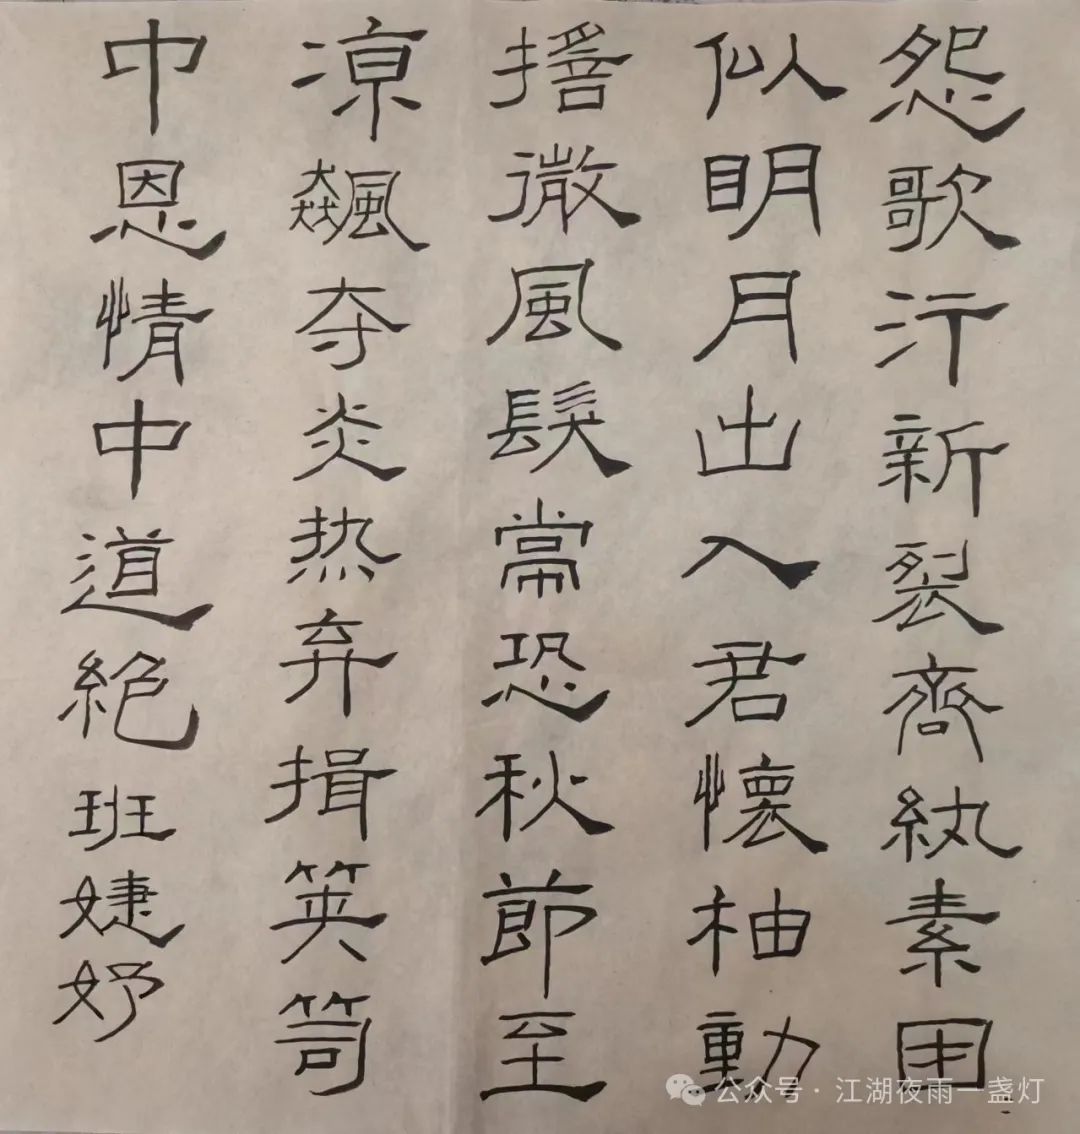 怨歌行新裂齊紈素团
似明月出入君懷柚動
搖微風髮常恐秋節至
凉飆夺炎热弃揖筴笥
巾恩情中道絕班婕妤
公众号·江湖夜雨一盏灯